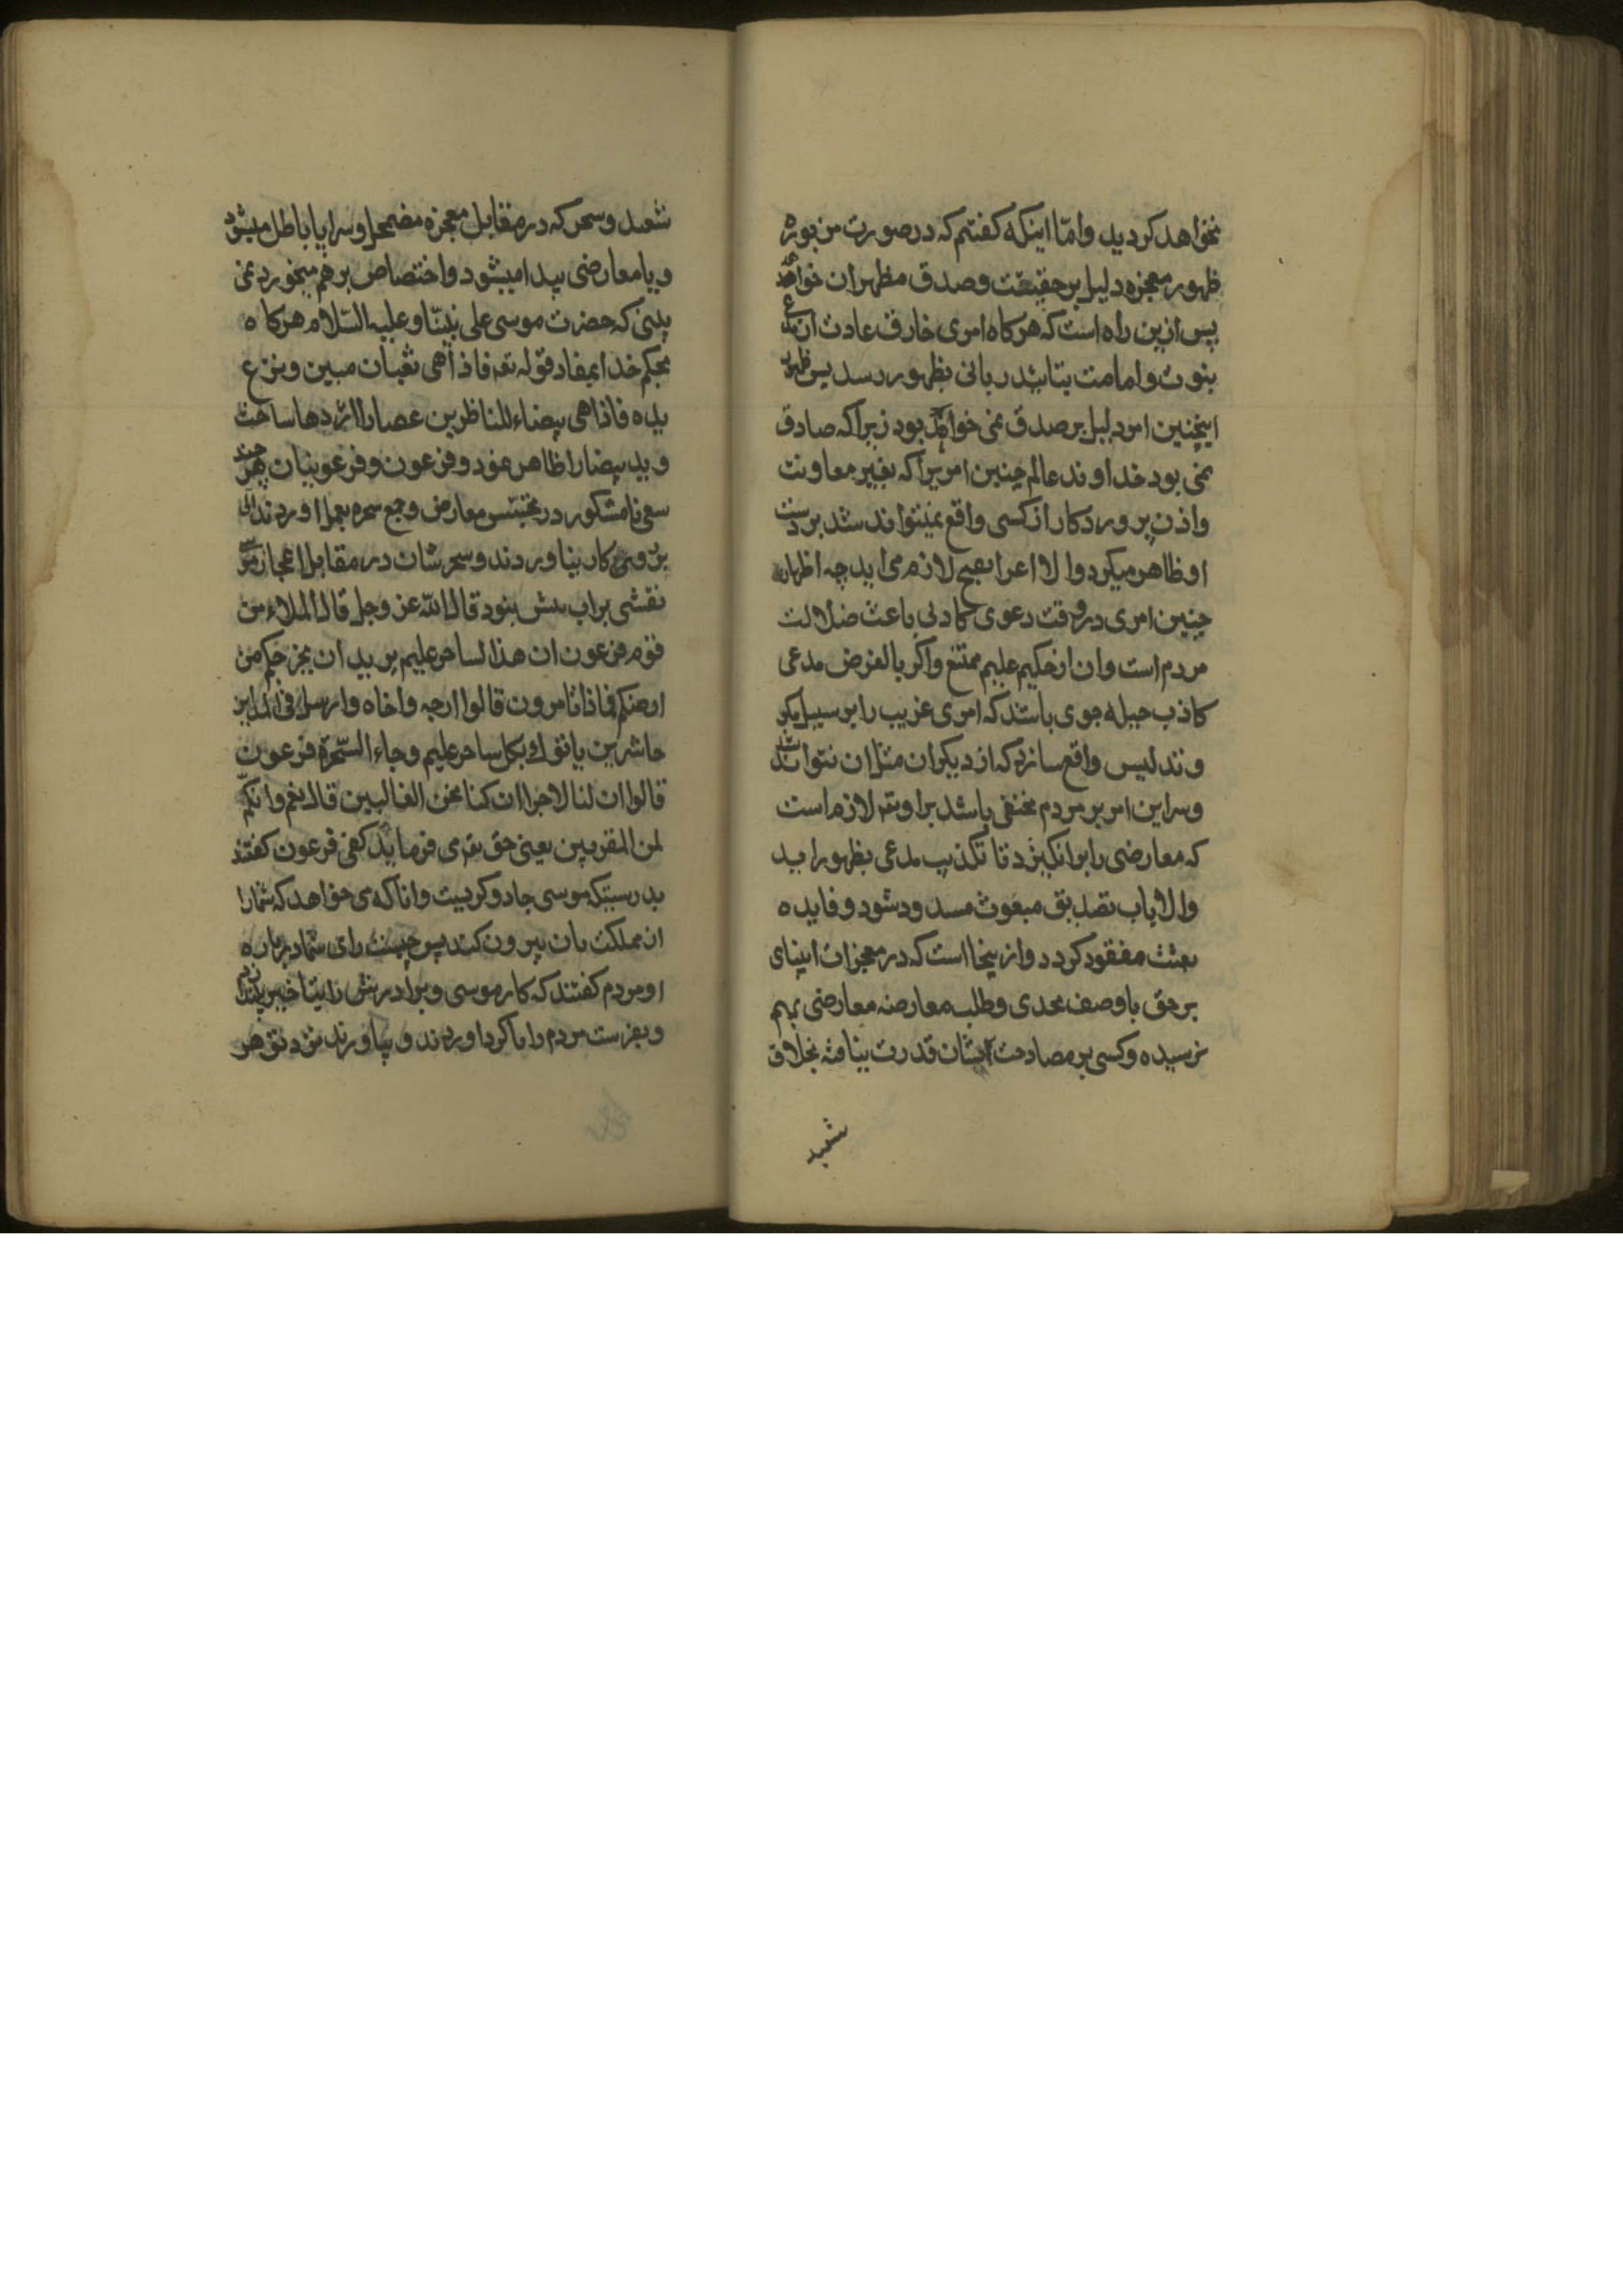 نخواهد کردید واما اینکه کفتم که در صورت مزبوره
ظهور معجزه دلیل بر حقیقت وصدق مظهر ان خواهد
پس ازین راه است که هرکاه امری خارق عادت از
بنوت وامامت بتایید ربانی بظهور رسد پس ظهور
اینچنین امر دلیل بر صدق نمی خواهد بود زیرا که صادق
نمی بود خداوند عالم چنین امریرا که بغیر معاونت
واذن پروردکار از کسی واقع نمیتواند شد بر دست
او ظاهر میکرد والا اعرا بقبیح لازم می اید چه اظهار
چنین امری در وقت دعوی کاذبی باعث ضلالت
مردم است وان از حکیم علیم ممتنع واکر بالفرض مدعی
کاذب حیله جوی باشد که امری غریب را بر سبیل مکر
وتدلیس واقع سازد که از دیکران مثل ان نتواند شد
وسر این امر بر مردم مختفی باشد براو تعه لازم است
که معارضی را برانکیزد تا تکذیب مدعی بظهور اید
والا باب تصدیق مبعوث مسدود شود وفایده
بعثت مفقود کردد وازینجا است که در معجزات انبیای
بر حق با وصف تحدی وطلب معارضه معارضی بهم
نرسیده وکسی بر مصادمت ایشان قدرت نیافته بخلاف
شعبد
شعبد وسحر که در مقابل معجزه مضمحل وسراپا باطل میشود
ویا معارضی پیدا میشود واختصاص برهم میخورد نمی
بینی که حضرت موسی علی نبینا وعلیه السلام هرکاه
بحکم خدا بمفاد قوله تعه فاذا هی ثعبان مبین ونزع
یده فاذا هی بیضاء للناظرین عصارا اژدها ساخت
وید بیضارا ظاهر نمود وفرعون وفرعونیان هر چند
سعی نامشکور در تجسس معارض وجمع سحره بعمل اوردند
بر روی کار نیاوردند وسحر شان در مقابل اعجاز
نقشی براب بیش نبود قال الله عز وجل قال الملاء من
قوم فرعون ان هذا لساحر علیم یرید ان یخرجکم من
ارضکم فماذا تامرون قالوا ارجه واخاه وارسل فی المداین
حاشرین یاتوک بکل ساحر علیم وجاء السحرة فرعون
قالوا ان لنا لاجرا ان کنا نحن الغالبین قال نعم وانکم
لمن المقربین یعنی حق تعه می فرماید کفتی فرعون کفتند
بدرستیکه موسی جادوکریست دانا که می خواهد که شمارا
از مملکت تان بیرون کند پس چیست رای شما در باره
او مردم کفتند که کار موسی وبرادرش را بتاخیر بینداز
وبفرست مردم را تا کرد اورند وبیاورند نزد تو هر